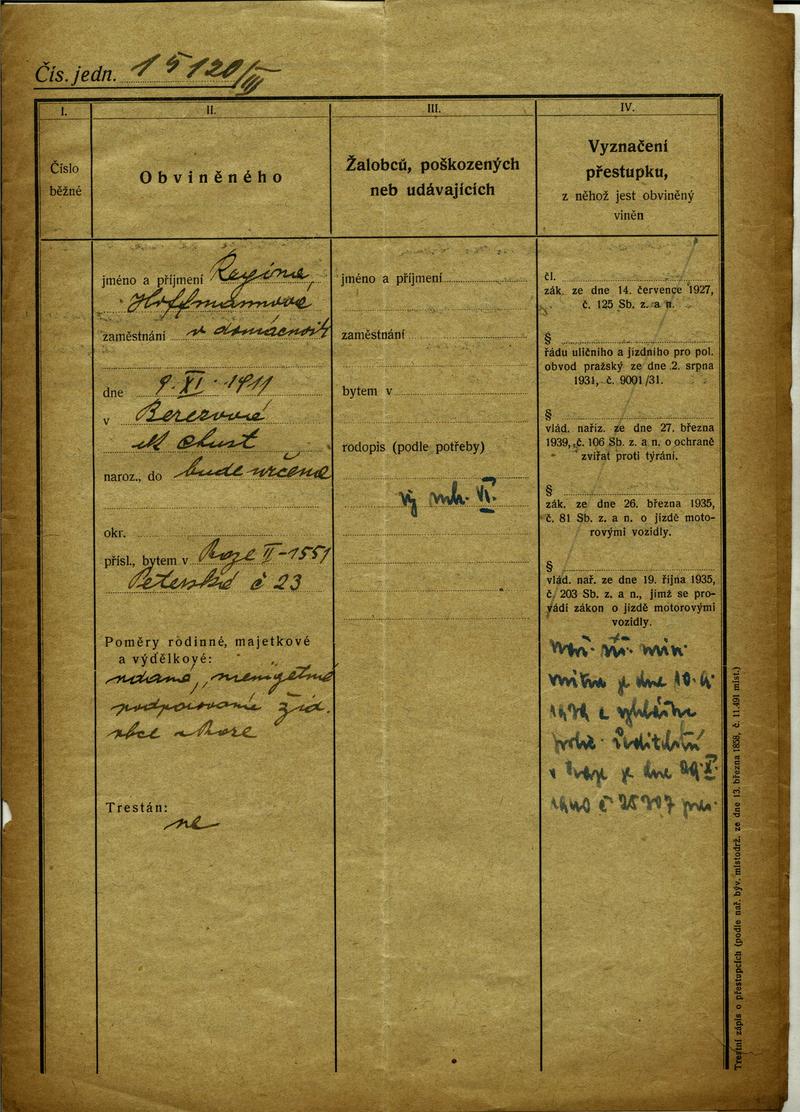 Čís. jedn. 15120/III
I.
II.
III.
IV.
Číslo
běžné
Obviněného
Žalobců, poškozených
neb udávajících
Vyznačení
přestupku,
z něhož jest obviněný
viněn
jméno a příjmení Regina
Hoffmannová
zaměstnání v domácnosti
dne 9. XI. 1911
v Berezovo
Chust
naroz., do bude určena
okr.
přísl., bytem v Praze II-1551
Petrská č 23
Poměry rodinné, majetkové
a výdělkové:
vdaná, nemajetná
podporovaná žid.
obce v Praze
Trestán:
ne
jméno a příjmení
zaměstnání
bytem v
rodopis (podle potřeby)
VI.
čl.
zák. ze dne 14. července 1927,
č. 125 Sb. z. a n.
§
řádu uličního a jízdního pro pol.
obvod pražský ze dne 2. srpna
1931, č. 9001/31.
§
vlád. naříz. ze dne 27. března
1939, č. 106 Sb. z. a n. o ochraně
zvířat proti týrání.
§
zák. ze dne 26. března 1935,
č. 81 Sb. z. a n. o jízdě moto-
rovými vozidly.
§
vlád. nař. ze dne 19. října 1935,
č. 203 Sb. z. a n., jímž se pro-
vádí zákon o jízdě motorovými
vozidly.
min.
vnitra z dne
a vyhláška
ředitelství
v Praze z dne
1940 č
Trestní zápis o přestupcích (podle nař. býv. místodrž. ze dne 13. března 1858, č. 11.491 míst.)